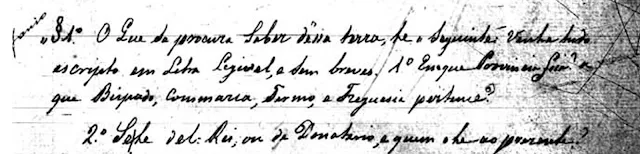 "§1º O Que da procura Saber dessa terra, he o Seguinte: Venha tudo
escripto em Letra Legivel, e sem breves. 1º Em que Provincia fica, a
que Bispado, Commarca, Termo, e Freguesia pertence?
2º Se he del Rei, ou de Donatario, e quem o he ao presente?